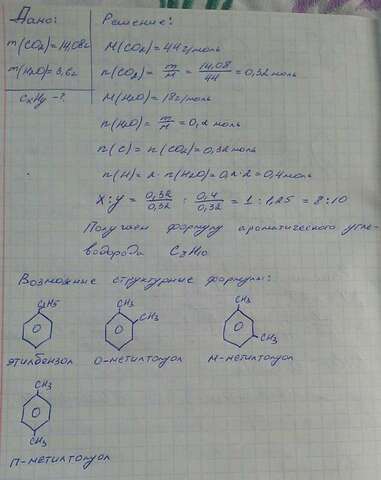 Дано:
m(CO2)=14,08г
m(H2O)=3,6г
CxHy-?
Решение:
M(CO2)=44г/моль
n(CO2)= m/M = 14,08/44 =0,32моль
M(H2O)=18г/моль
n(H2O)= m/M =0,2 моль
n(C)= n(CO2)=0,32моль
n(H)=2·n(H2O)=0,2·2=0,4моль
X:y= 0,32/0,32 : 0,4/0,32 =1:1,25 = 8:10
Получаем формулу ароматического угле-
водорода C8H10
Возможные структурные формулы:
C2H5
CH3
CH3
CH3
CH3
этилбензол
О-метилтолуол
М-метилтолуол
CH3
CH3
П-метилтолуол